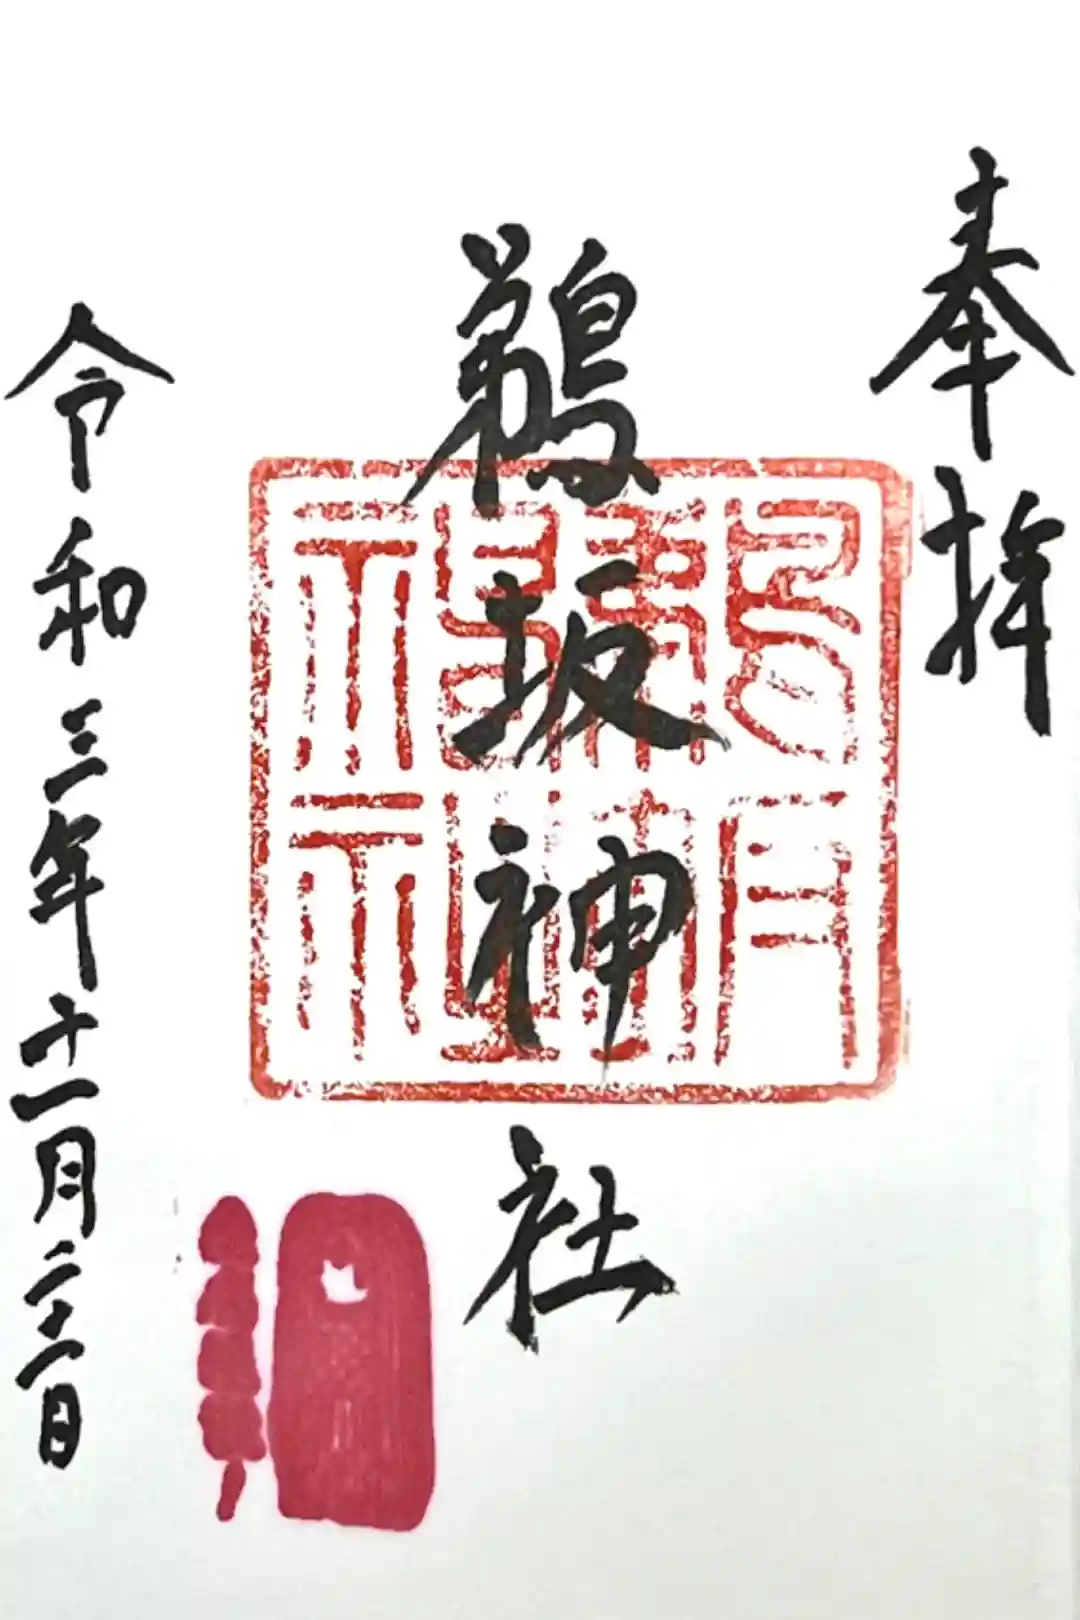 奉拝
鵜坂神社
令和三年十一月二十一日